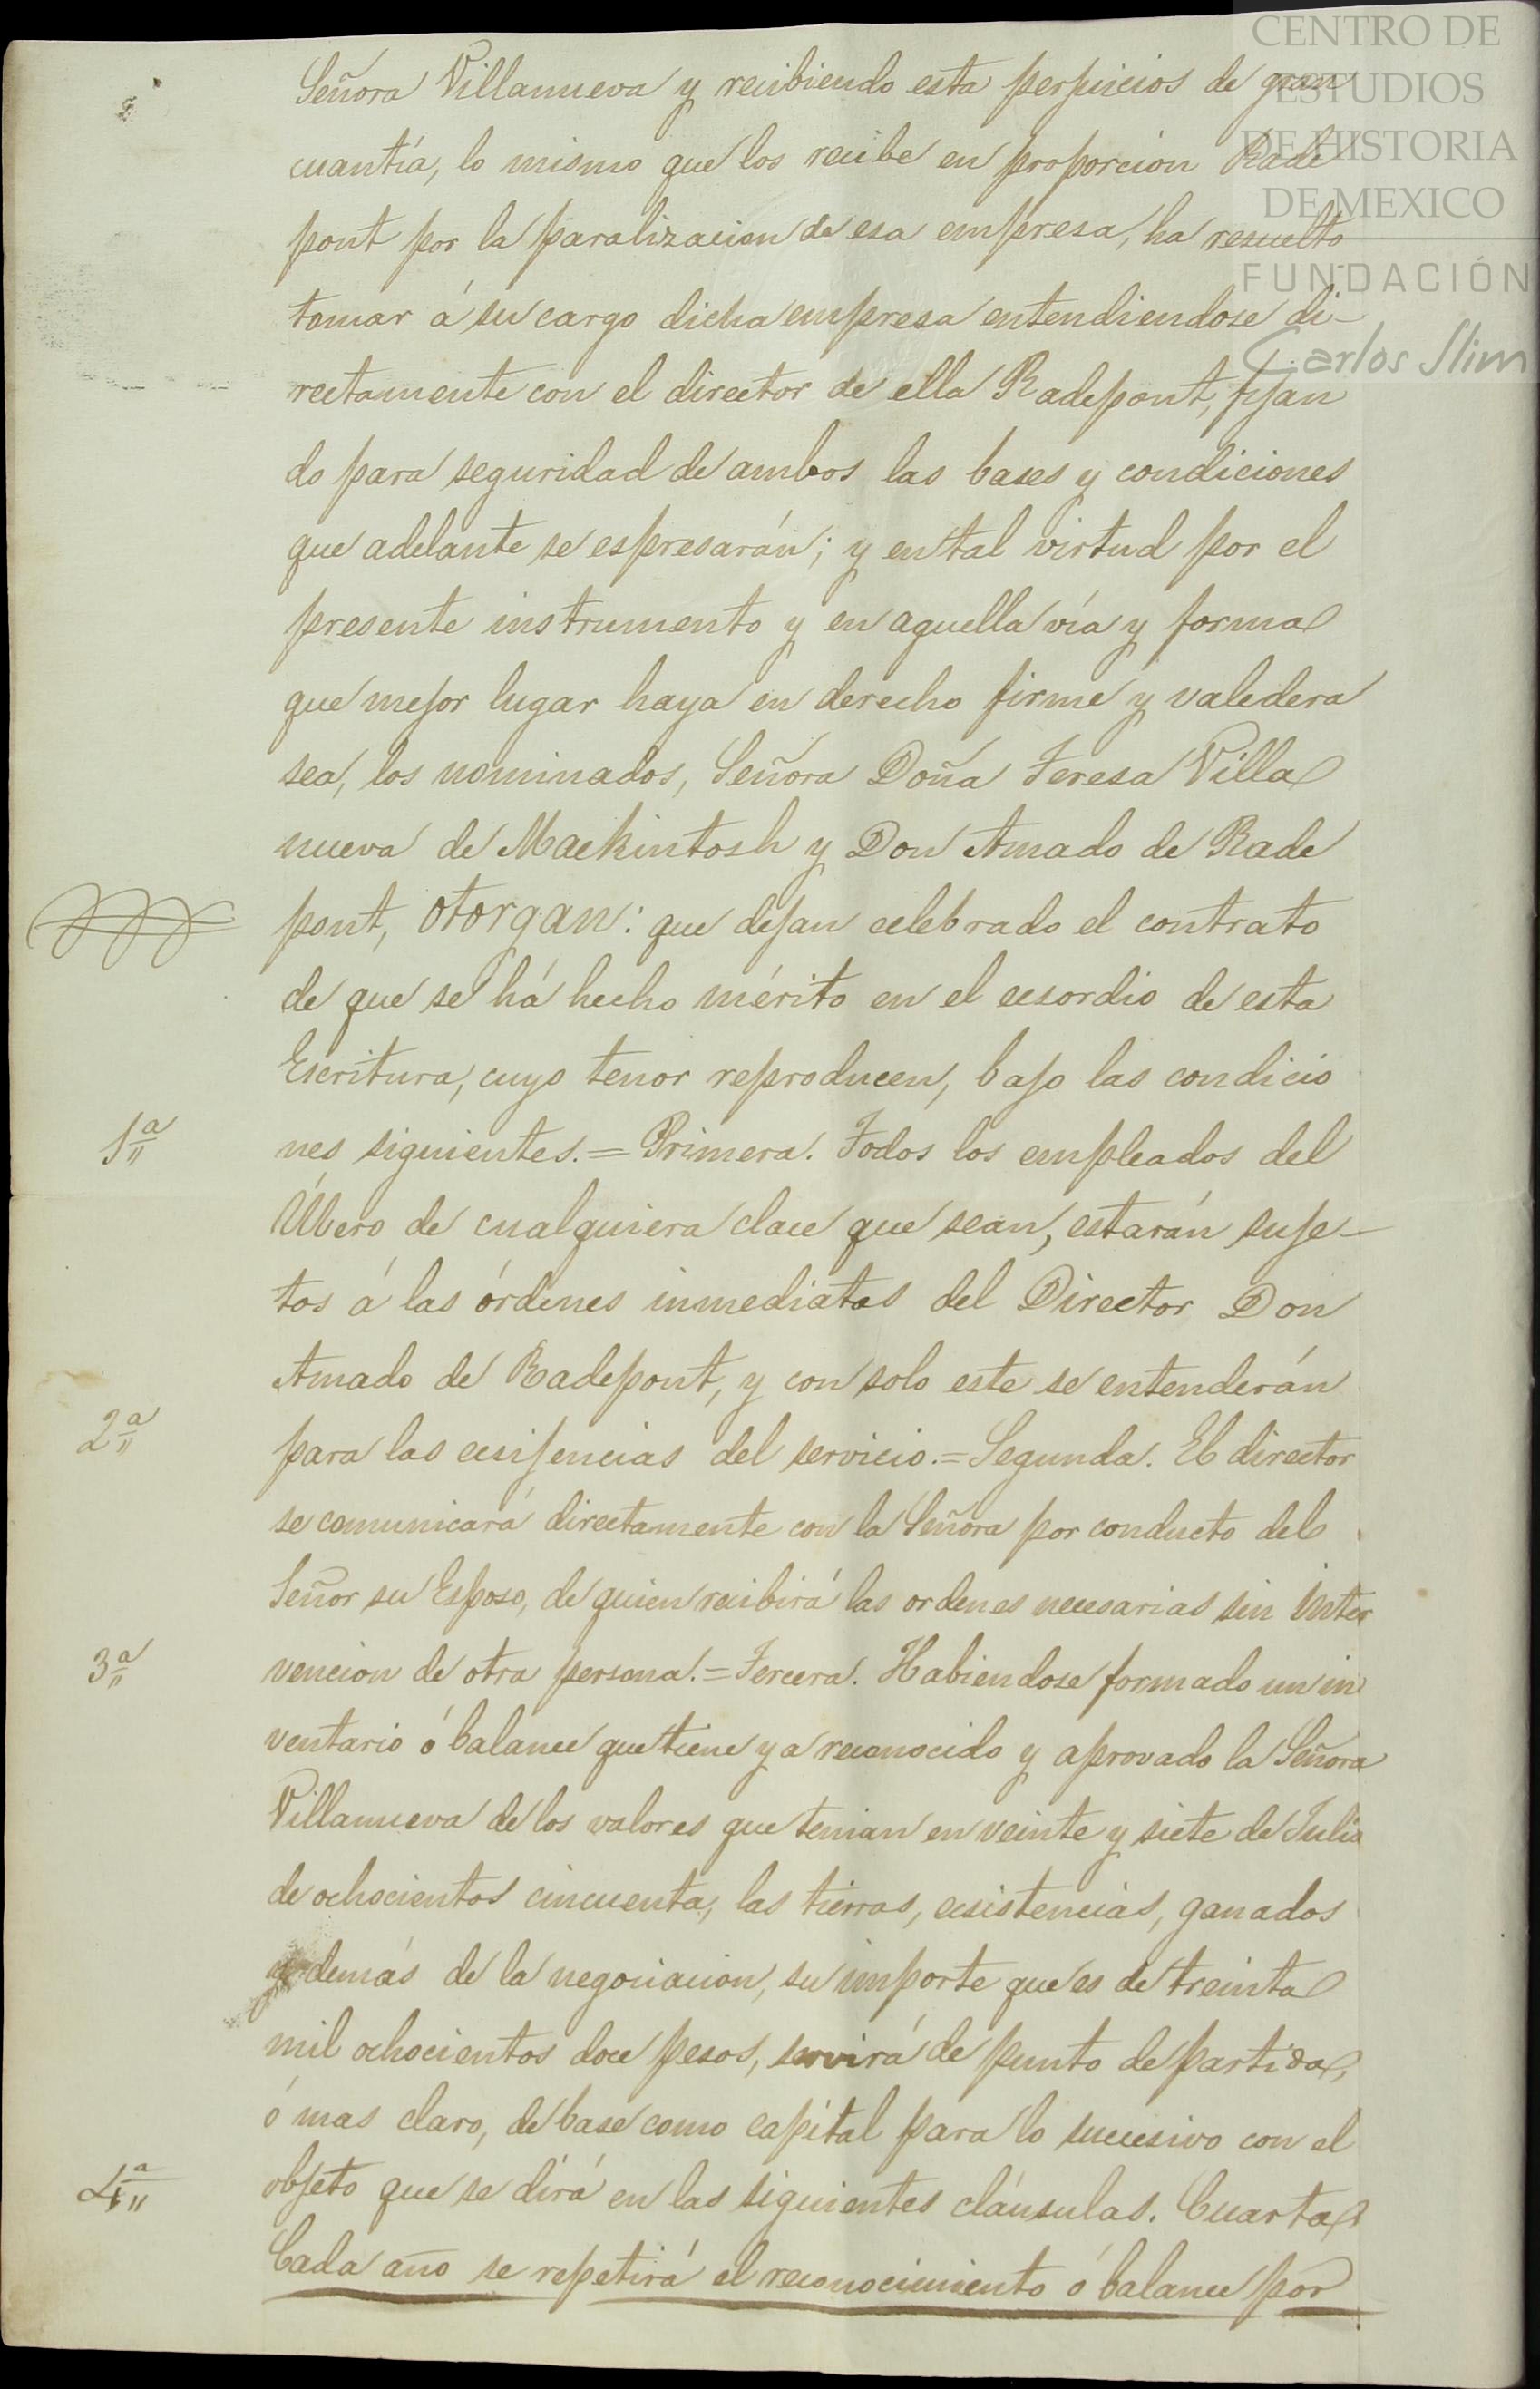 CENTRO DE
ESTUDIOS
DE HISTORIA
DE MEXICO
FUNDACIÓN
Carlos Slim
Señora Villanueva y recibiendo esta perjuicios de gran
cuantía, lo mismo que los recibe en proporcion Rade
pont por la paralizacion de esa empresa, ha resuelto
tomar á su cargo dicha empresa entendiendose di-
rectamente con el director de ella Radepont, fijan
do para seguridad de ambos las bases y condiciones
que adelante se espresarán; y en tal virtud por el
presente instrumento y en aquella vía y forma
que mejor lugar haya en derecho firme y valedera
sea, los nominados, Señora Doña Teresa Villa
nueva de Mackintosh y Don Amado de Rade
pont, otorgan: que dejan celebrado el contrato
de que se há hecho mérito en el ecsordio de esta
Escritura, cuyo tenor reproducen, bajo las condicio
1ª nes siguientes.= Primera. Todos los empleados del
Úbero de cualquiera clace que sean, estarán suje-
tos á las órdenes inmediatas del Director Don
Amado de Radepont, y con solo este se entenderán
2ª para las ecsijencias del servicio.= Segunda. El director
se comunicará directamente con la Señora por conducto del
Señor su Esposo, de quien recibirá las ordenes necesarias sin inter
3ª vencion de otra persona.= Tercera. Habiendose formado un in
ventario ó balance que tiene ya reconocido y aprovado la Señora
Villanueva de los valores que tenian en veinte y siete de Julio
de ochocientos cincuenta, las tierras, ecsistencias, ganados
y demás de la negociacion, su importe que es de treinta
mil ochocientos doce pesos, servirá de punto de partida,
ó mas claro, de base como capital para lo succesivo con el
4ª objeto que se dirá en las siguientes cláusulas. Cuarta
Cada año se repetirá el reconocimiento ó balance por